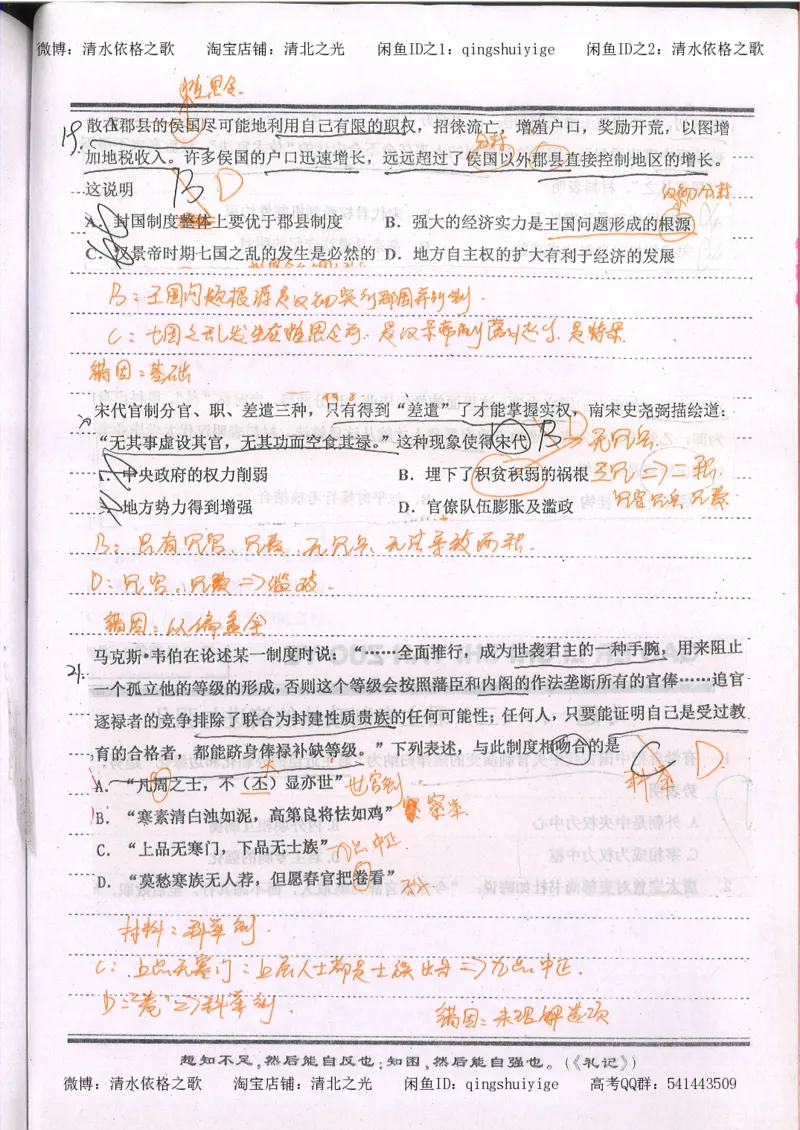 微博：清水依格之歌 淘宝店铺：清北之光 闲鱼ID之1：qingshuiyige 闲鱼ID之2：清水依格之歌
推恩令
19.
散在郡县的侯国尽可能地利用自己有限的职权，招徕流亡，增殖户口，奖励开荒，以图增
分封
加地税收入。许多侯国的户口迅速增长，远远超过了侯国以外郡县直接控制地区的增长。
这说明 B D
汉初分封
A．封国制度整体上要优于郡县制度 B．强大的经济实力是王国问题形成的根源
C．汉景帝时期七国之乱的发生是必然的 D．地方自主权的扩大有利于经济的发展
B：王国问题根源是汉初实行郡国并行制．
错因：基础
宋代官制分官、职、差遣三种，只有得到“差遣”了才能掌握实权，南宋史尧弼描绘道：
“无其事虚设其官，无其功而空食其禄。”这种现象使得宋代 B D 无冗兵
A．中央政府的权力削弱 B．埋下了积贫积弱的祸根 三冗⇒二积．
C．地方势力得到增强 D．官僚队伍膨胀及滥政 冗官冗兵冗费
B：只有冗官、冗费，无冗兵，无法导致两积．
D：冗官、冗费⇒滥政．
错因：以偏盖全
21.
马克斯·韦伯在论述某一制度时说：“……全面推行，成为世袭君主的一种手腕，用来阻止
一个孤立他的等级的形成，否则这个等级会按照藩臣和内阁的作法垄断所有的官俸……追官
逐禄者的竞争排除了联合为封建性质贵族的任何可能性；任何人，只要能证明自己是受过教
育的合格者，都能跻身俸禄补缺等级。”下列表述，与此制度相吻合的是
科举 D
A．“凡周之士，不（丕）显亦世” 世官制
B．“寒素清白浊如泥，高第良将怯如鸡” 察举
C．“上品无寒门，下品无士族” 九品中正．
D．“莫愁寒族无人荐，但愿春官把卷看”
材料：科举制．
C：上品无寒门：上层人士都是士族出身⇒九品中正．
D：“卷”⇒科举制．
错因：未理解选项
想知不足，然后能自反也；知困，然后能自强也。（《礼记》）
微博：清水依格之歌 淘宝店铺：清北之光 闲鱼ID：qingshuiyige 高考QQ群：541443509